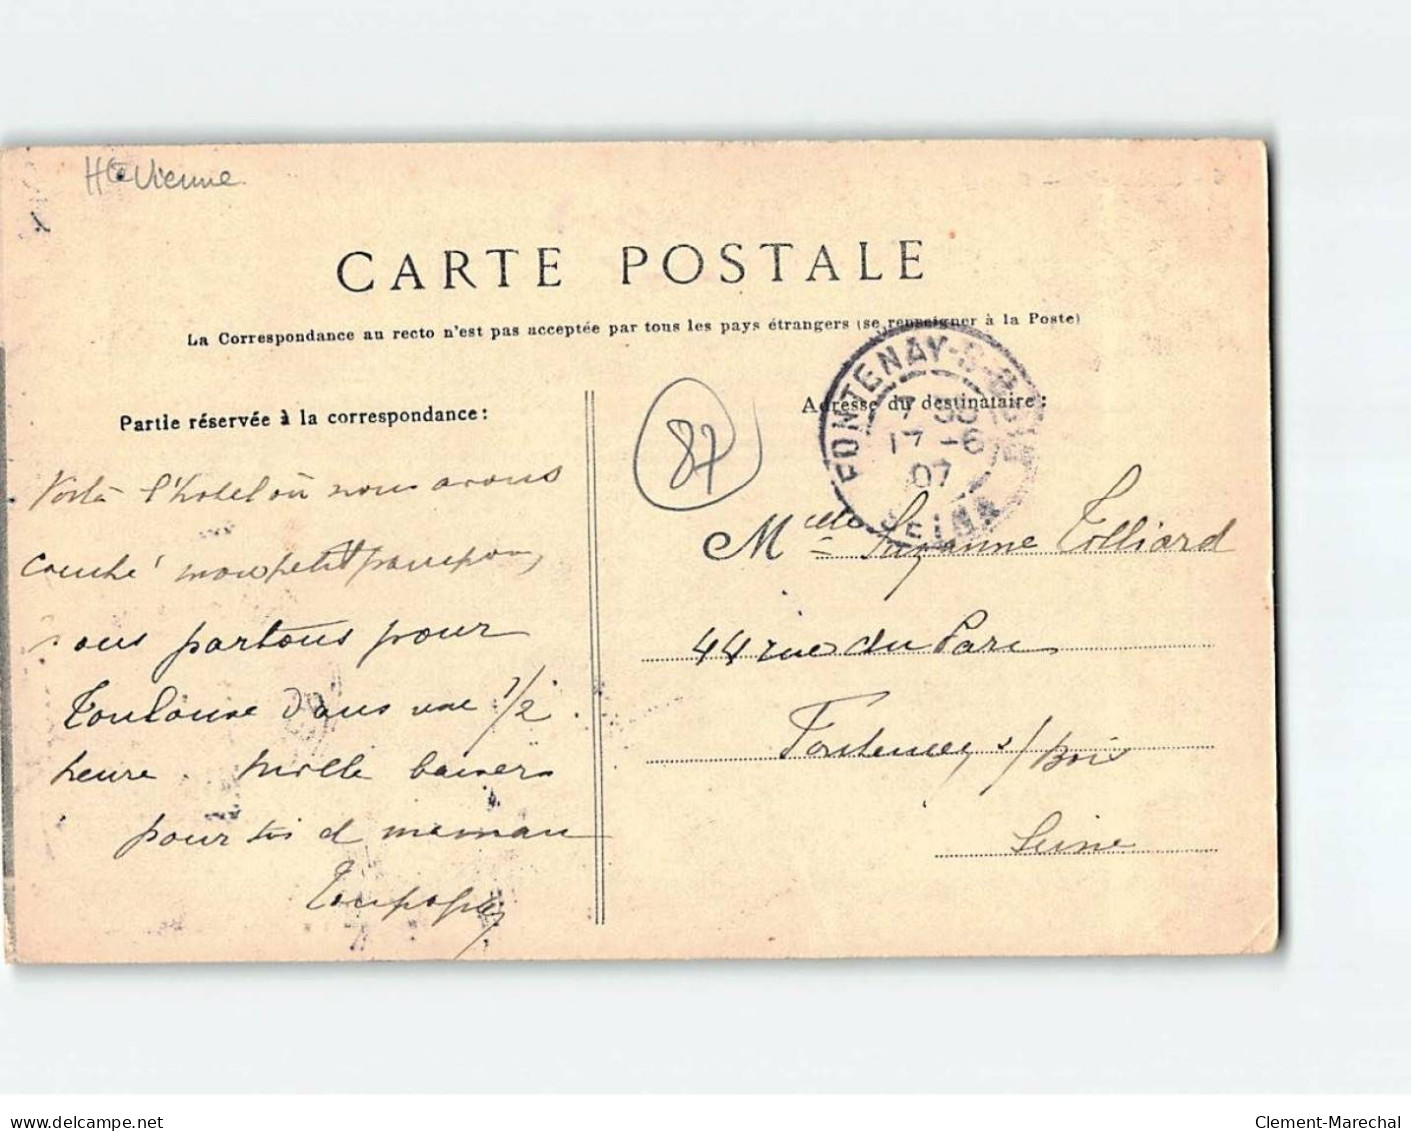 Hte Vienne
CARTE POSTALE
La Correspondance au recto n'est pas acceptée par tous les pays étrangers (se renseigner à la Poste)
Partie réservée à la correspondance :
Voilà l'hotel où nous avons
couché mon petit
nous partons pour
Toulouse dans une 1/2
heure. Mille baisers
pour toi et maman
87
Adresse du destinataire :
FONTENAY-S-BOIS
17 -6
07
SEINE
Melle Suzanne Tolliard
44 rue du Parc
Fontenay s/ Bois
Seine
delcampe.net
Clement-Marechal